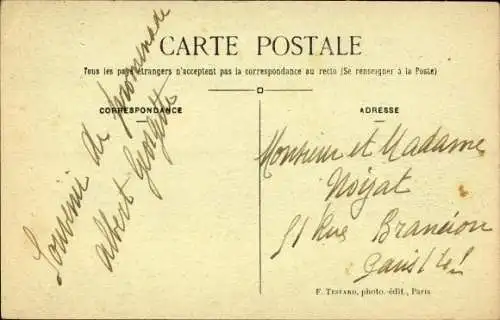 CARTE POSTALE
Tous les pays étrangers n'acceptent pas la correspondance au recto (Se renseigner à la Poste)
CORRESPONDANCE
Souvenir de promenade
Albert Georgette
ADRESSE
Monsieur et Madame
Noyat
51 Rue Brancion
Paris
F. Testard, photo.-édit., Paris